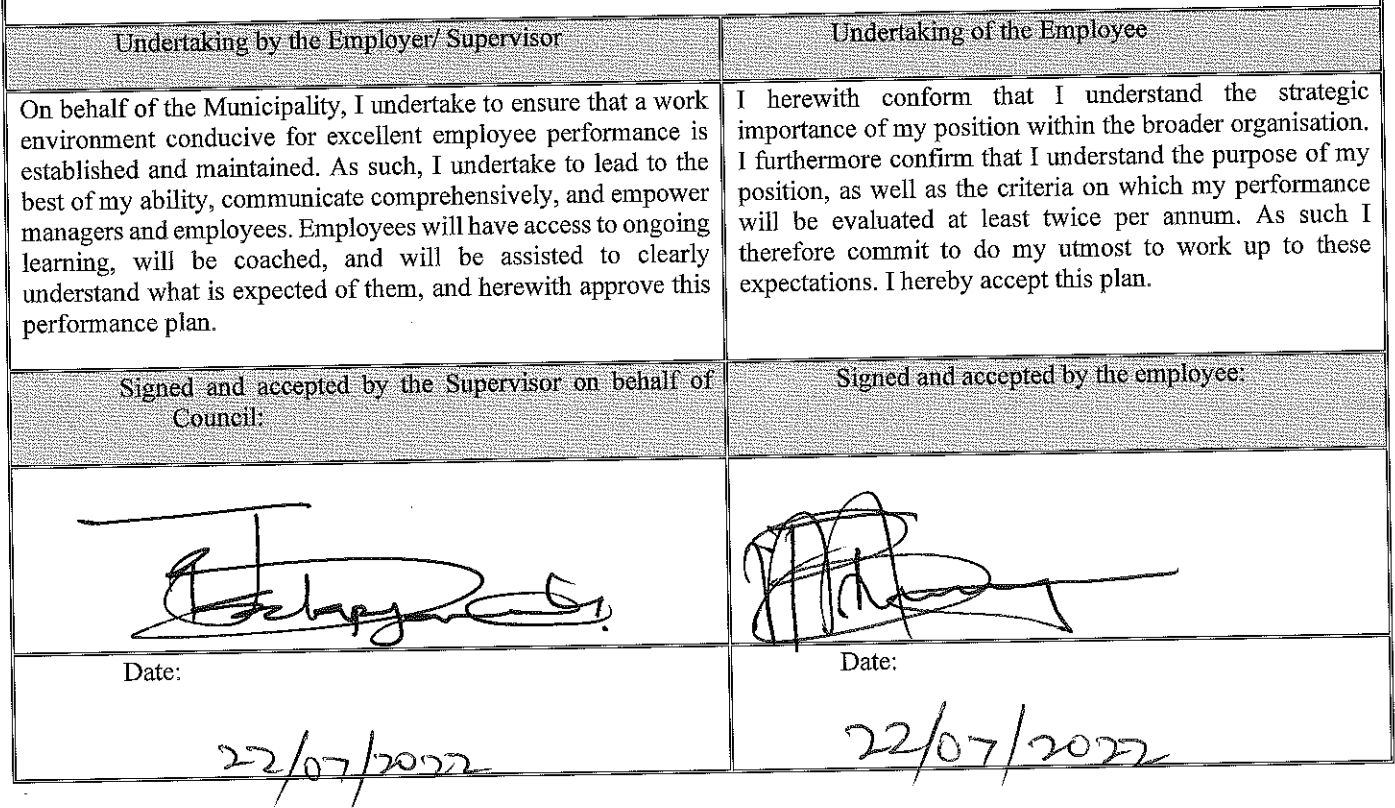 Undertaking by the Employer/ Supervisor
Undertaking of the Employee
On behalf of the Municipality, I undertake to ensure that a work
environment conducive for excellent employee performance is
established and maintained. As such, I undertake to lead to the
best of my ability, communicate comprehensively, and empower
managers and employees. Employees will have access to ongoing
learning, will be coached, and will be assisted to clearly
understand what is expected of them, and herewith approve this
performance plan.
I herewith conform that I understand the strategic
importance of my position within the broader organisation.
I furthermore confirm that I understand the purpose of my
position, as well as the criteria on which my performance
will be evaluated at least twice per annum. As such I
therefore commit to do my utmost to work up to these
expectations. I hereby accept this plan.
Signed and accepted by the Supervisor on behalf of
Council:
Signed and accepted by the employee:
Date:
22/07/2022
Date:
22/07/2022